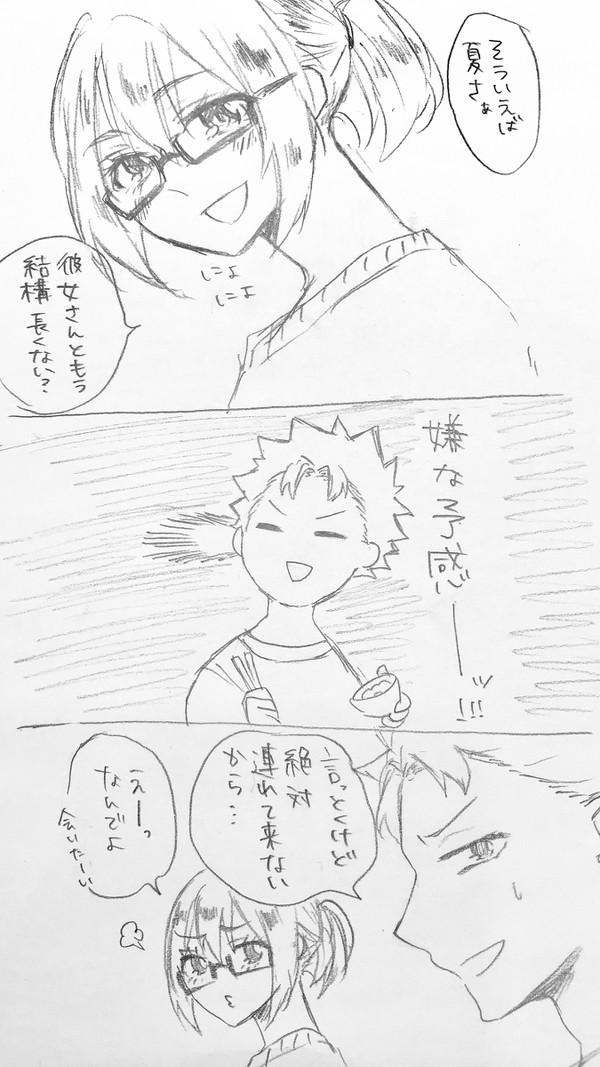 そういえば
夏さぁ
によ
によ
彼女さんともう
結構長くない?
嫌な予感ーーッ!!!
言っとくけど
絶対
連れて来ない
から…
えーっ
なんでよ
会いたーい